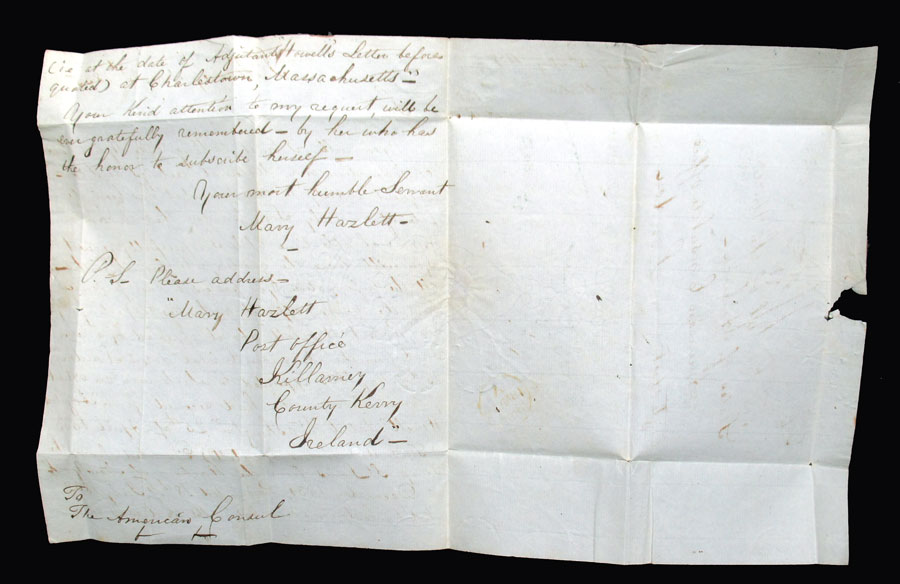 (ie at the date of Adjutant Howells Letter before
quoted) at Charlestown, Massachusetts"—
Your Kind attention to my request, will be
ever gratefully remembered — by her who has
the honor to subscribe herself —
Your most humble Servant
Mary Hazlett —
P. S— Please address —
"Mary Hazlett
Post office
Killarney
County Kerry
Ireland"—
To
The American Consul